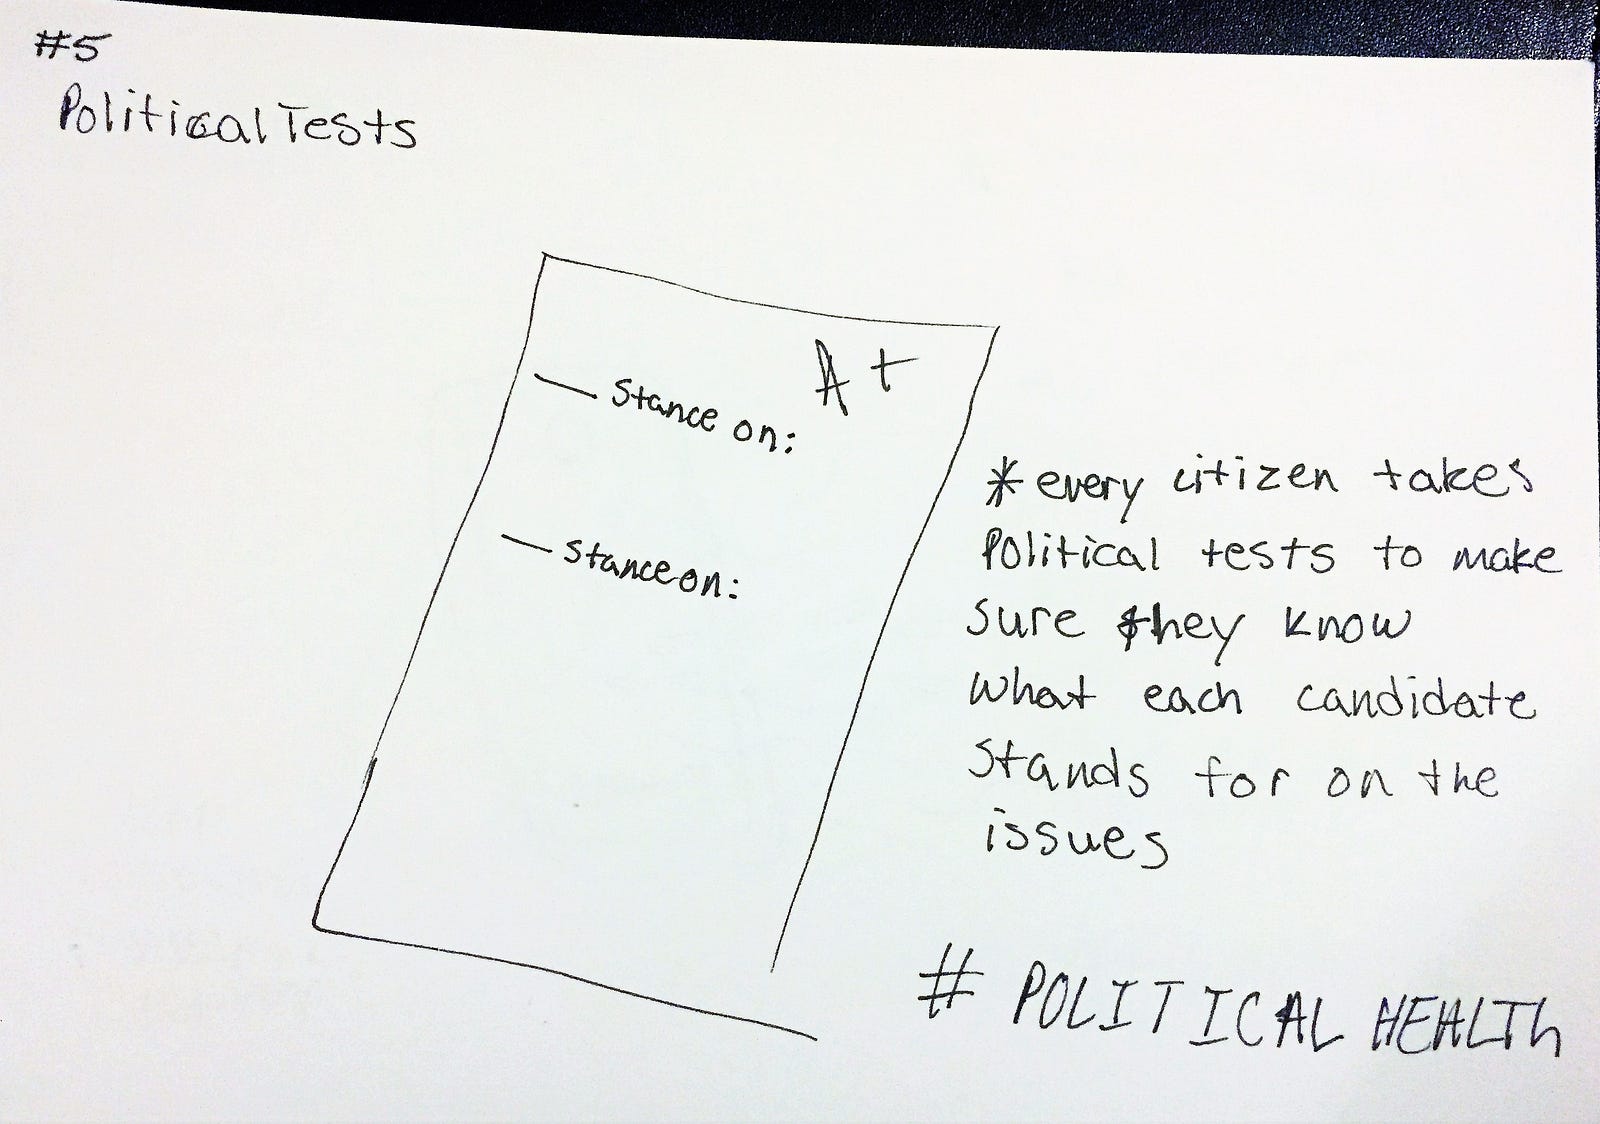 #5
Political Tests
A+
— Stance on:
— Stance on:
* every citizen takes
Political tests to make
sure they know
what each candidate
stands for on the
issues
# POLITICAL HEALTH